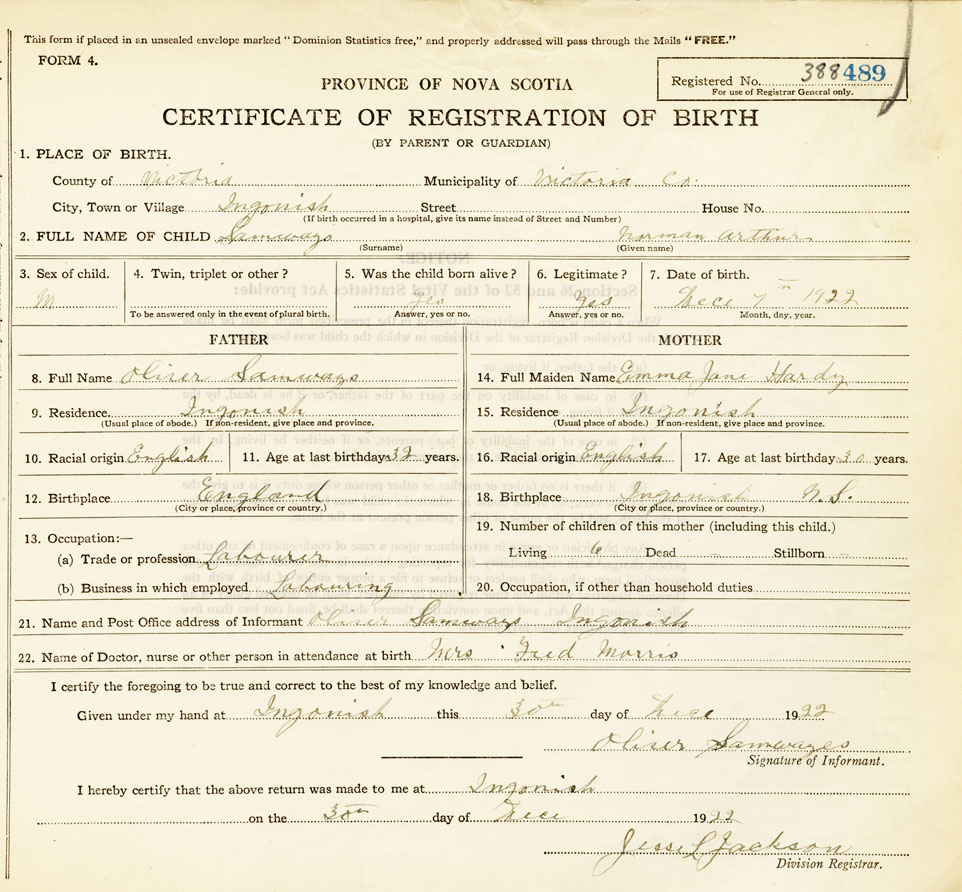 This form if placed in an unsealed envelope marked "Dominion Statistics free," and properly addressed will pass through the Mails "FREE."
FORM 4.
Registered No. 388489
For use of Registrar General only.
PROVINCE OF NOVA SCOTIA
CERTIFICATE OF REGISTRATION OF BIRTH
(BY PARENT OR GUARDIAN)
1. PLACE OF BIRTH.
County of Victoria Municipality of Victoria Co.
City, Town or Village Ingonish Street House No.
(If birth occurred in a hospital, give its name instead of Street and Number)
2. FULL NAME OF CHILD Samways Norman Arthur
(Surname) (Given name)
3. Sex of child. 4. Twin, triplet or other? 5. Was the child born alive? 6. Legitimate? 7. Date of birth.
M Yes Yes Dece 7th 1922
To be answered only in the event of plural birth. Answer, yes or no. Answer, yes or no. Month, day, year.
FATHER MOTHER
8. Full Name Oliser Samways 14. Full Maiden Name Emma Jane Hardy
9. Residence Ingonish 15. Residence Ingonish
(Usual place of abode.) If non-resident, give place and province. (Usual place of abode.) If non-resident, give place and province.
10. Racial origin English 11. Age at last birthday 32 years. 16. Racial origin English 17. Age at last birthday 30 years.
12. Birthplace England 18. Birthplace Ingonish N.S.
(City or place, province or country.) (City or place, province or country.)
13. Occupation:— 19. Number of children of this mother (including this child.)
(a) Trade or profession Labourer Living 6 Dead – Stillborn –
(b) Business in which employed Labouring 20. Occupation, if other than household duties
21. Name and Post Office address of Informant Oliser Samways Ingonish
22. Name of Doctor, nurse or other person in attendance at birth Mrs Fred Morris
I certify the foregoing to be true and correct to the best of my knowledge and belief.
Given under my hand at Ingonish this 30th day of Dece 1922
Oliser Samwayes
Signature of Informant.
I hereby certify that the above return was made to me at Ingonish
on the 30th day of Dece 1922
Jesse L Jackson
Division Registrar.